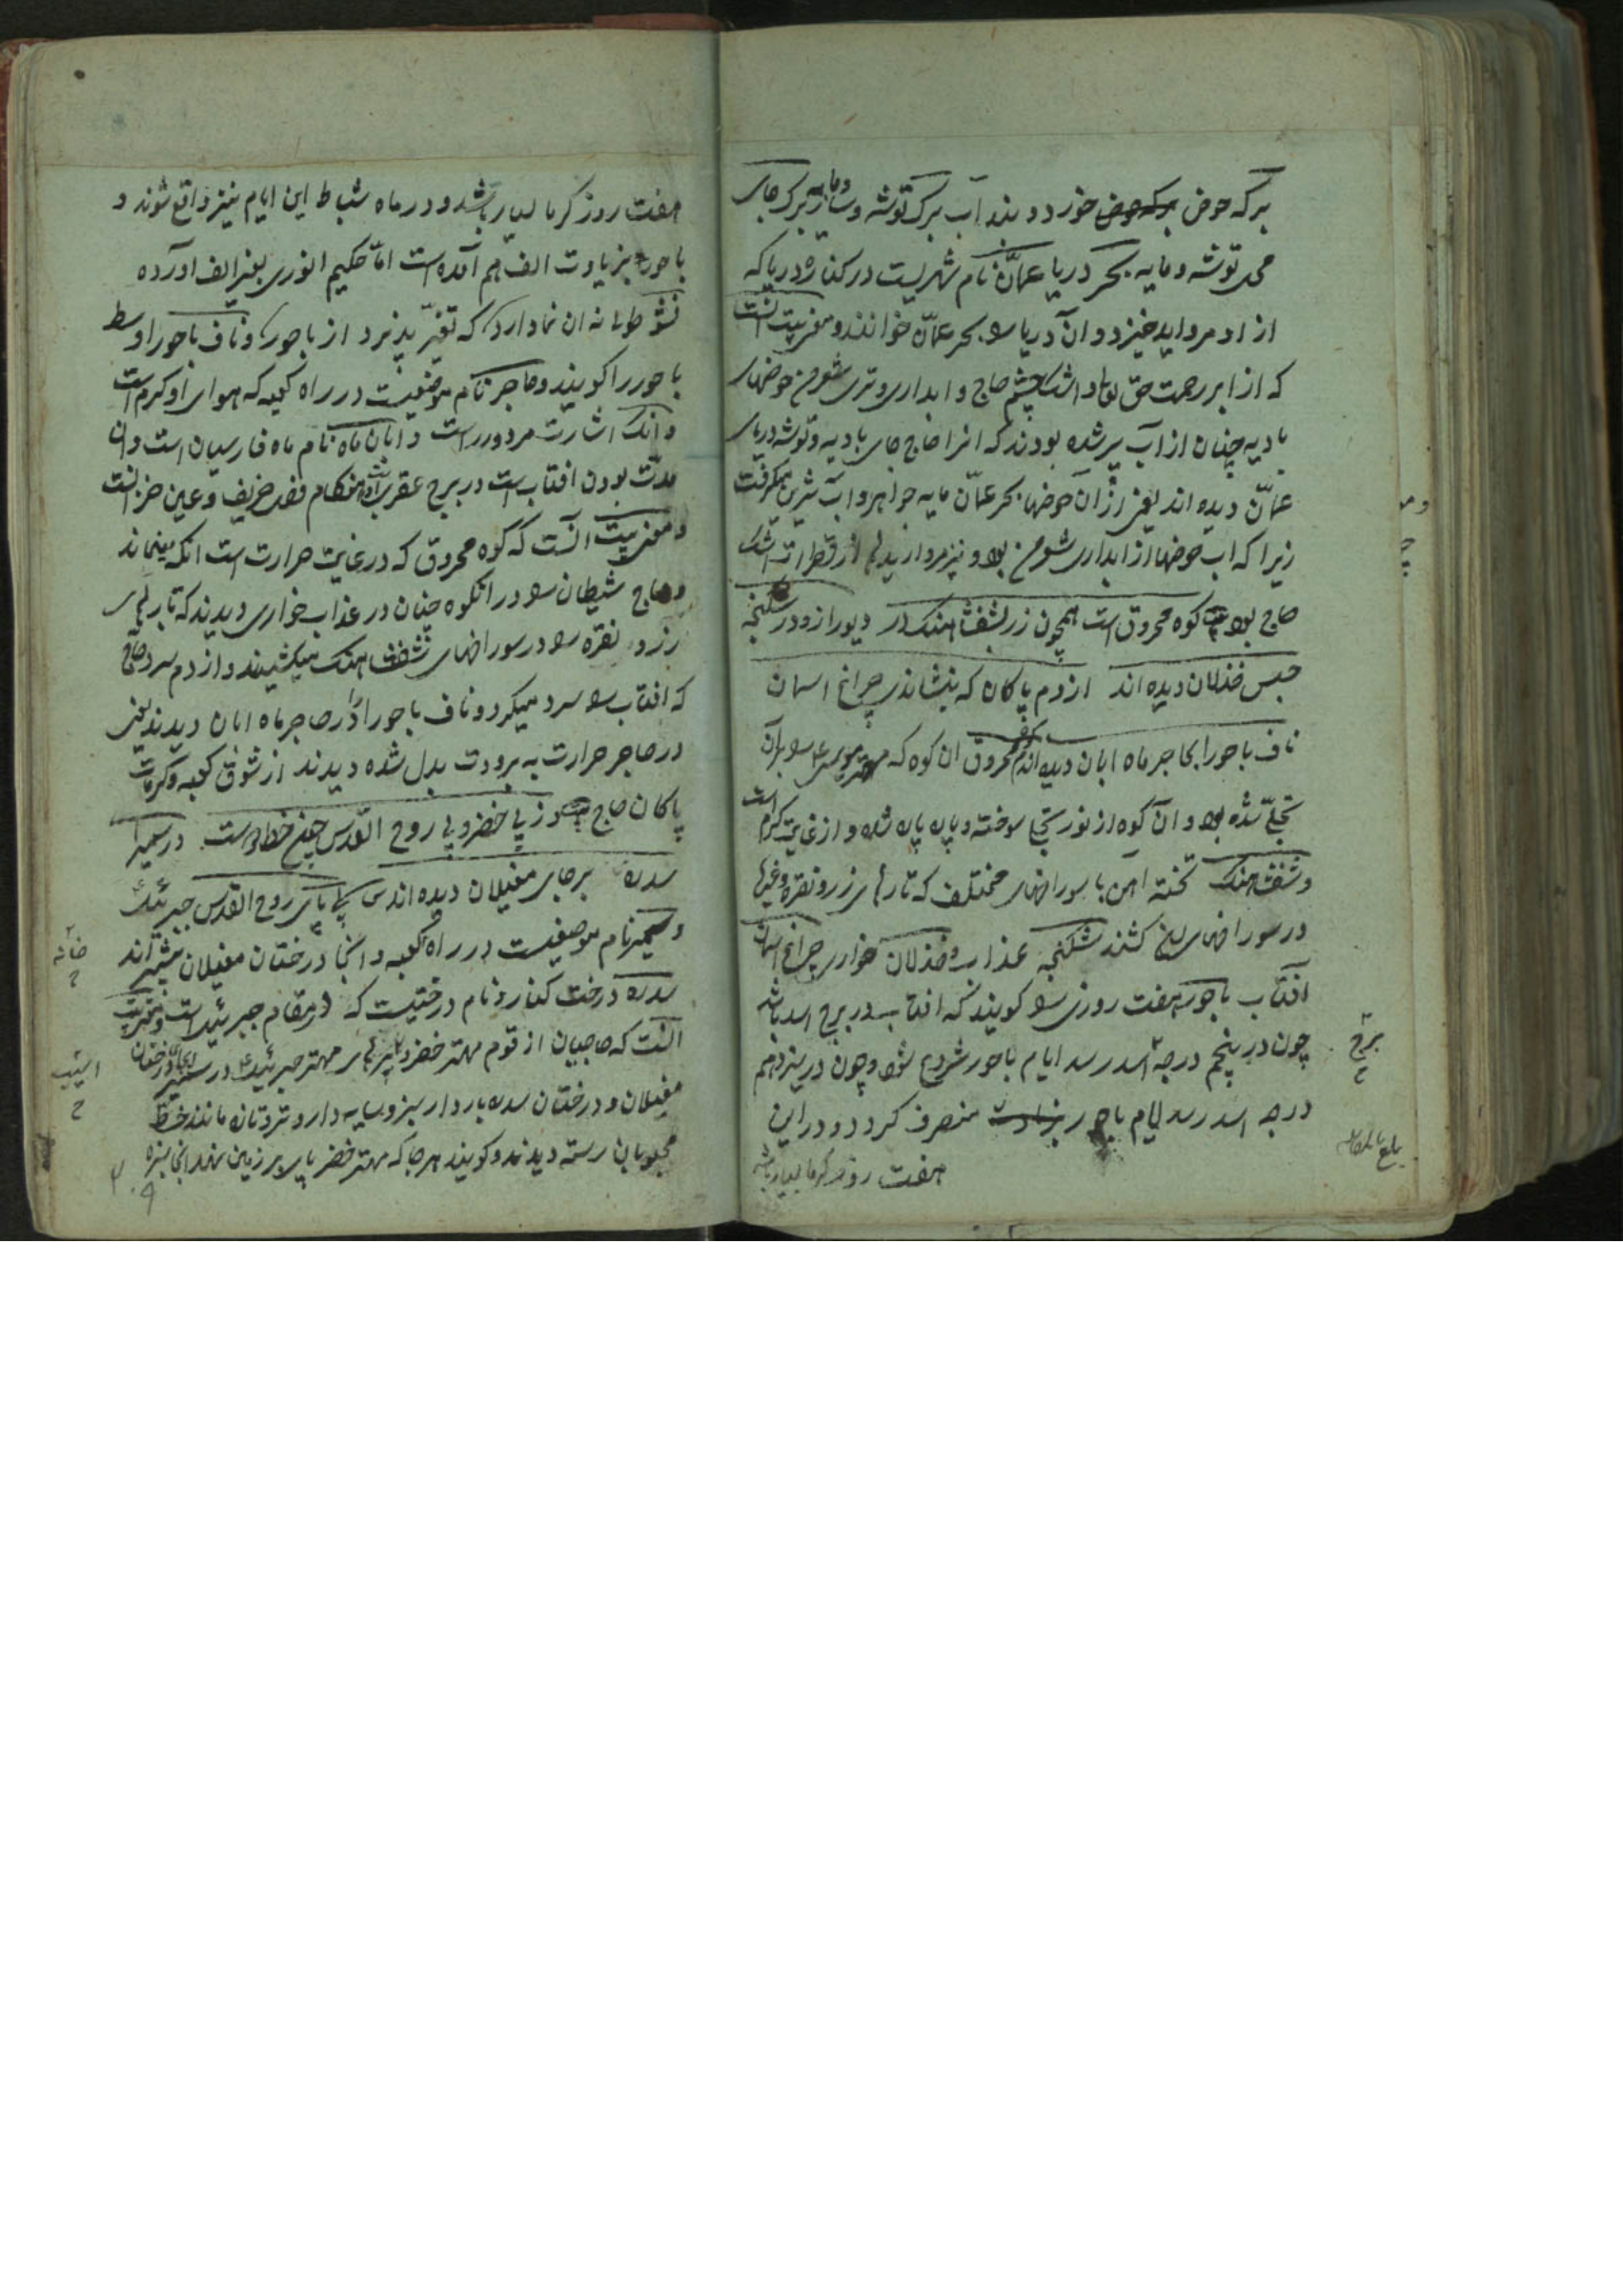 برکه حوض خورد و بند آب برک توشه و ساز و مایه برکه جای
می توشه و مایه بحر دریا عمّان نام شهریست در کناره دریا که
از او مروارید خیزد و آن دریا را بحر عمّان خوانند و معنی بیت آنست
که از ابر رحمت حق تعالی و اشک چشم حاج و ابداری و تری شعر من حوضهای
بادیه چنان از آب پر شده بودند که انرا حاج جای بادیه و توشه دریای
عمّان دیده اند یعنی از آن حوضها بحر عمّان مایه جواهر و آب شیرین میکرفت
زیرا که آب حوضها از ابداری شعر من بود و نیز مرواریدها از قطرات اشک
حاج بود کوه محروق است همچون زر بشفشاهنک در دیو را زو در شکنجه
حبس خذلان دیده اند از دم پاکان که بنشاندی چراغ اسمان
ناف باحورا بحاجر ماه ابان دیده اند کوه محروق ان کوه که مهتر موسی را بران
تجلّی شده بود و آن کوه از نور تجلی سوخته و پاره پاره شده و از غایت کرم است
و شفشاهنک تخته آهن با سوراخهای مختلف که تارهای زر و نقره و غیرها
در سوراخهای کشند شکنجه عذاب و خذلان خواری چراغ اسمان
افتاب باحور هفت روزی را کویند که افتاب در برج اسد باشد
چون در پنجم درجه اسد رسد ایام باحور شروع شود و چون در سیزدهم
درجه اسد رسد ایام باحور منصرف کردد و در این
هفت روز کرما بسیار باشد
برج
هفت روز کرما بسیار باشد و در ماه شباط این ایام نیز واقع شوند و
باحور بزیادت الف هم آمده است امّا حکیم انوری بغیر الف آورده
نشو طوبی نه ان نما دارد که تغیّر پذیرد از باحور و ناف باحورا وسط
باحور را کویند و حاجر نام موضعیست در راه کعبه که هوای او کرم است
و آنک اشارت مر دور راست و ابان ماه نام ماه فارسیان است و ان
مدّت بودن افتاب است در برج عقرب و آن هنکام فصل خریف و عین خزانست
و معنی بیت آنست که کوه محروق که در غایت حرارت است انکه مینماند
و حاج شیطان را در انکوه چنان در عذاب خواری دیدند که تارهای
زر و نقره را در سوراخهای شفشاهنک میکشیدند و از دم سرد حاج
که افتاب را سرد میکرد و ناف باحورا را در حاجر ماه ابان دیدند یعنی
در حاجر حرارت به برودت بدل شده دیدند از شوق کعبه و کرمات
پاکان حاج وز پی خضر و پی روح القدس چون خط دوست در سمیرا
سدره بر جای مغیلان دیده اند پی پای روح القدس جبرئیل
و سمیرا نام موضعیست در راه کعبه و انجا درختان مغیلان بیشتر اند
سدره درخت کنار و نام درختیست که در مقام جبرئیل است و معنی بیت
آنست که حاجیان از قوم مهتر خضر و پرهای مهتر جبرئیل در سمیرا بجای درختان
مغیلان و درختان سدره باردار سبز و سایه دار و تر و تازه مانند خط
محبوبان رسته دیدند و کویند هر جا که مهتر خضر پای بر زمین نهد انجا سبزه